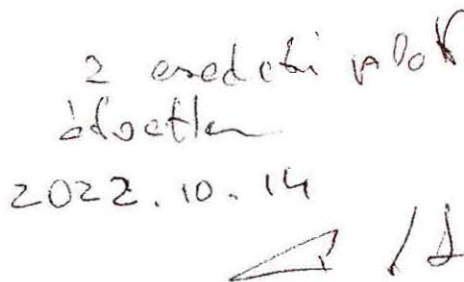 2 eredeti pld
átvettem
2022.10.14